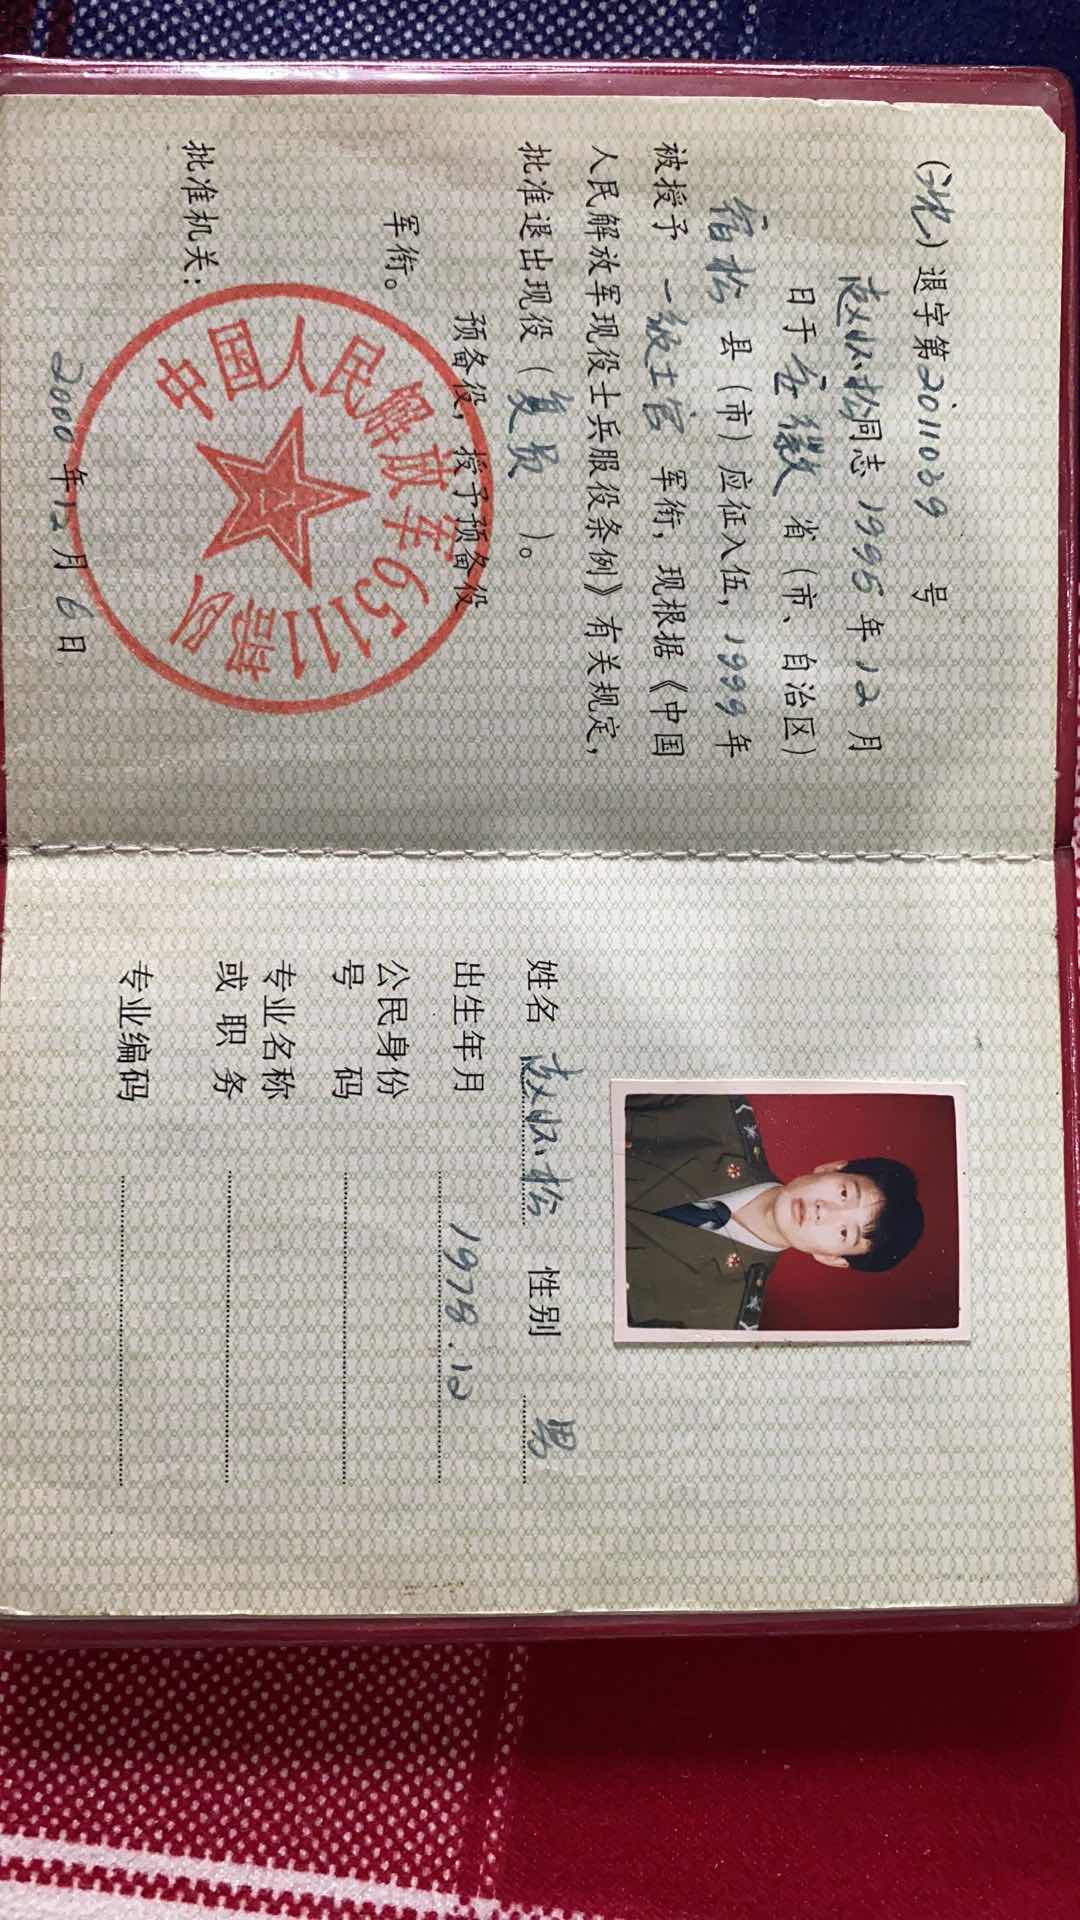 (沈)退字第2011039 号
赵怀松同志1995年12月
日于安徽 省(市、自治区)
宿松 县(市)应征入伍,1999年
被授予 一级士官 军衔,现根据《中国
人民解放军现役士兵服役条例》有关规定,
批准退出现役(复员 )。
预备役,授予预备役
军衔。
批准机关:
中国人民解放军65111部队
2000年12月6日
姓名 赵怀松 性别 男
出生年月 1978.12
公民身份
号 码
专业名称
或职务
专业编码